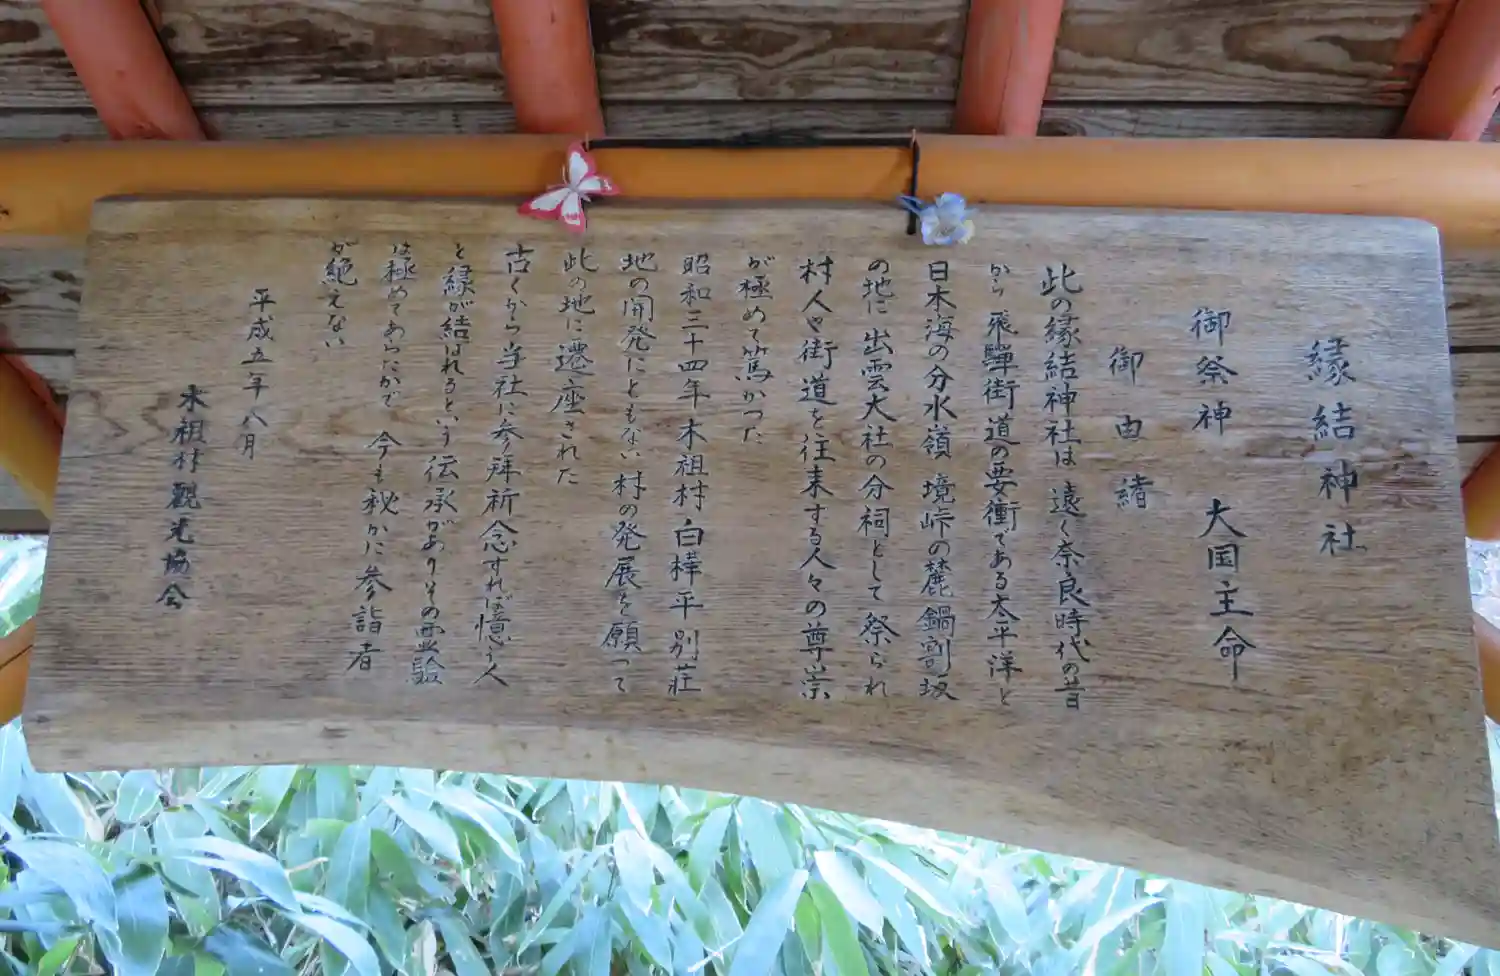 縁結神社
御祭神　大国主命
御由緒
此の縁結神社は　遠く奈良時代の昔
から　飛騨街道の要衝である太平洋と
日本海の分水嶺　境峠の麓　鍋割坂
の地に　出雲大社の分祠として　祭られ
村人や街道を往来する人々の尊崇
が極めて篤かつた
昭和三十四年　木祖村　白樺平別荘
地の開発にともない　村の発展を願って
此の地に遷座された
古くから当社に参拝祈念すれば憶う人
と縁が結ばれるという　伝承がありその霊験
は極めてあらたかで　今も秘かに参詣者
が絶えない
平成五年八月
木祖村観光協会